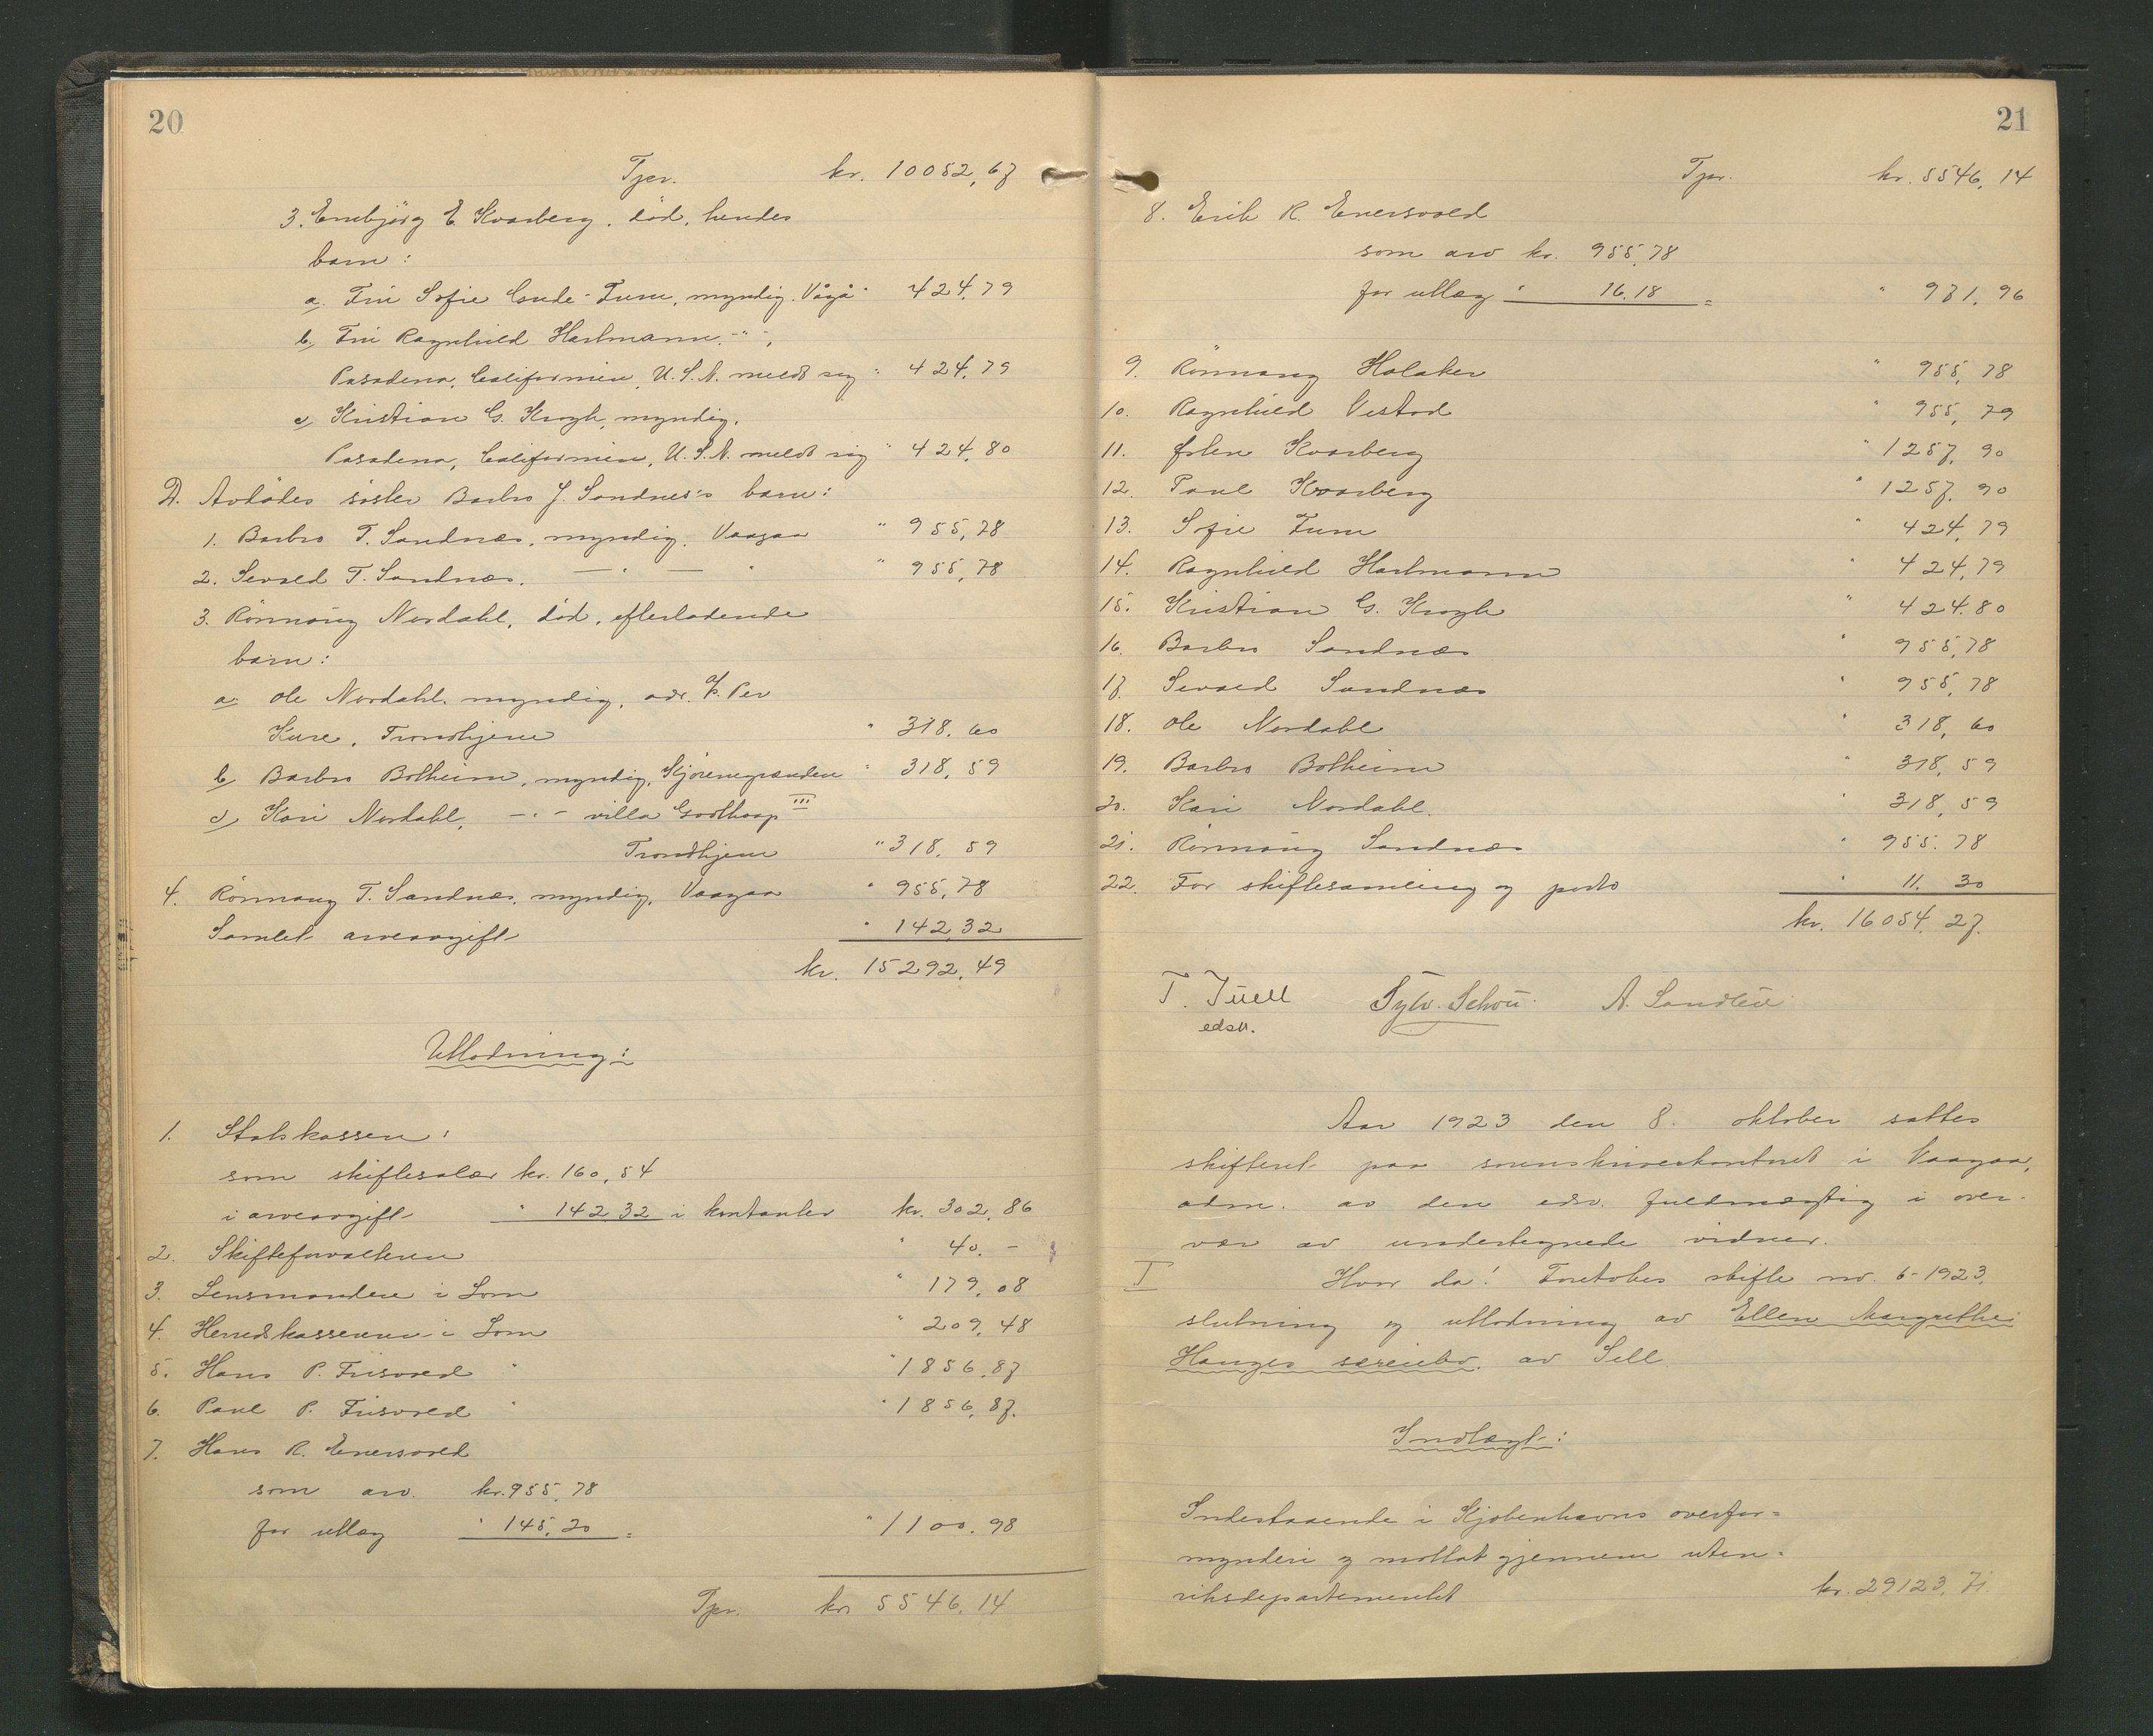 20
Tpr. kr. 10052,67
3. Embjörg E. Kvarberg, död, hendes
barn:
a. Fru Sofie Gude-Tum, myndig. Vågå " 424,79
b, Fru Ragnhild Hartmann, -"-,
Pasadena, Californien, U.S.A. meldt sig " 424,79
c, Kristian G. Krogh, myndig,
Pasadena, Californien, U.S.A. meldt sig " 424,80
D. Avdødes søster Barbro J. Sandnes's barn:
1. Barbro T. Sandnes, myndig, Vaagaa " 955,78
2. Sevald T. Sandnes, — " — " " 955,78
3. Rönnaug Nordahl, död, efterladende
barn:
a. Ole Nordahl, myndig, adr. Hr. Per
Kure, Trondhjem " 318,60
b, Barbro Botheim, myndig, Skjörengrenden " 318,59
c, Kari Nordahl, - " - villa Godthaap III
Trondhjem " 318,59
4. Rönnaug T. Sandnes, myndig, Vaagaa " 955,78
Samlet arveavgift " 142,32
kr. 15292,49
Utlodning:
1. Statskassen:
som skiftesalær kr. 160,54
i arveavgift " 142,32 i kontanter kr. 302,86
2. Skifteforvalteren " 40.-
3. Lensmanden i Lom " 179,08
4. Herredskassereren i Lom " 209,48
5. Hans P. Frisvold " " 1856,87
6. Paul P. Frisvold " " 1856,87.
7. Hans R. Enersvold
som arv. kr. 955,78
for utlæg " 145,20 = " 1100.98
Tpr. kr. 5546,14
21
Tpr. kr. 5546,14
8. Erik R. Enersvold
som arv kr. 955,78
for utlæg " 16,18 = " 971,96
9. Rönnaug Holaker " 955,78
10. Ragnhild Vistad " 955,79
11. Esten Kvarberg " 1257,90
12. Paul Kvarberg " 1257,90
13. Sofie Tum " 424,79
14. Ragnhild Hartmann " 424,79
15. Kristian G. Krogh " 424.80
16. Barbro Sandnes " 955,78
17. Sevald Sandnes " 955,78
18. Ole Nordahl " 318,60
19. Barbro Botheim " 318,59
20. Kari Nordahl. " 318,59
21. Rönnaug Sandnes " 955.78
22. For skiftesamling og porto " 11.30
kr. 16054.27.
T. Juell Sylv. Schou. A. Sandlie
edsv.
Aar 1923 den 8. oktober sattes
skifteret paa sorenskriverkontoret i Vaagaa,
adm. av den edsv. fuldmægtig i over-
vær av undertegnede vidner.
I Hvor da! Foretokes skifte nr. 6-1923,
slutning og utlodning av Ellen Margrethe
Hauges særeiebo av Sell.
Indlægt:
Indestaaende i Kjøbenhavns overfor=
mynderi og mottat gjennem uten=
riksdepartementet kr. 29123,71